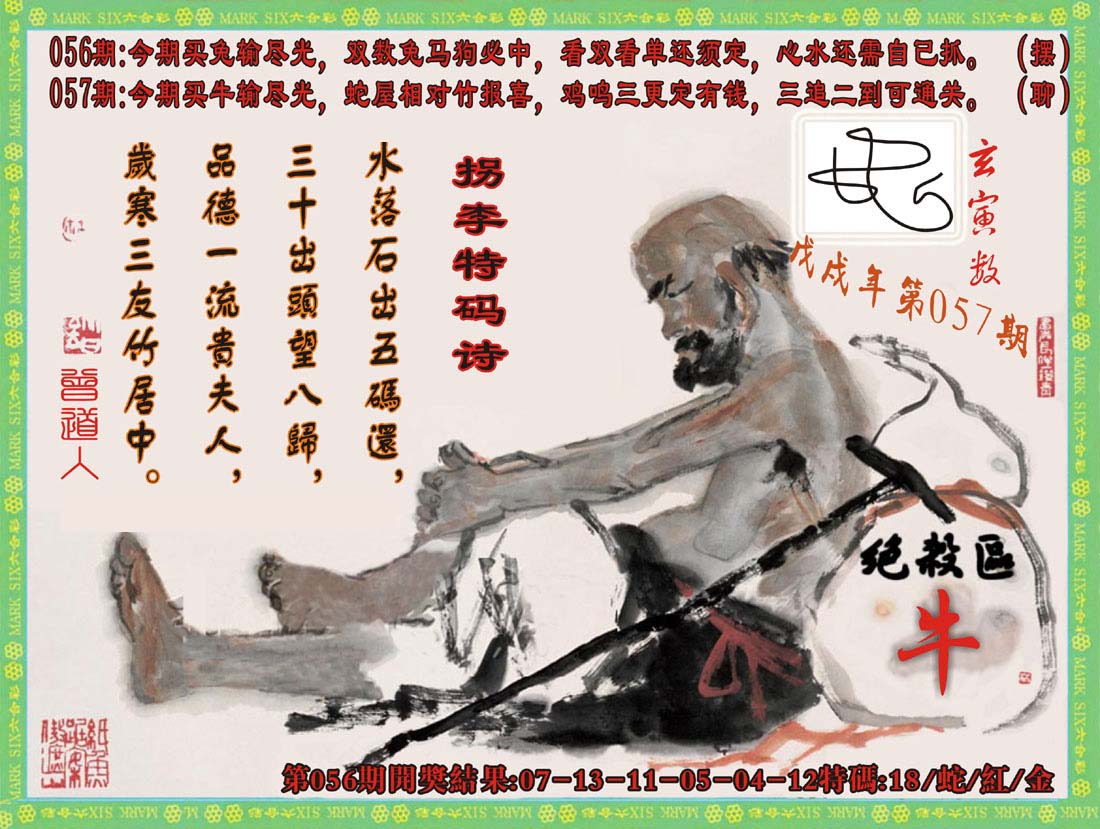 MARK SIX六合彩
056期:今期买兔输尽光，双数兔马狗必中，看双看单还须定，心水还需自已抓。 (摆)
057期:今期买牛输尽光，蛇屋相对竹报喜，鸡鸣三更定有钱，三追二到可通关。 (聊)
玄寅数
戊戌年第057期
拐李特码诗
水落石出五碼還，
三十出頭望八歸，
品德一流貴夫人，
歲寒三友竹居中。
曾道人
绝殺區
牛
第056期開獎結果:07-13-11-05-04-12特碼:18/蛇/紅/金